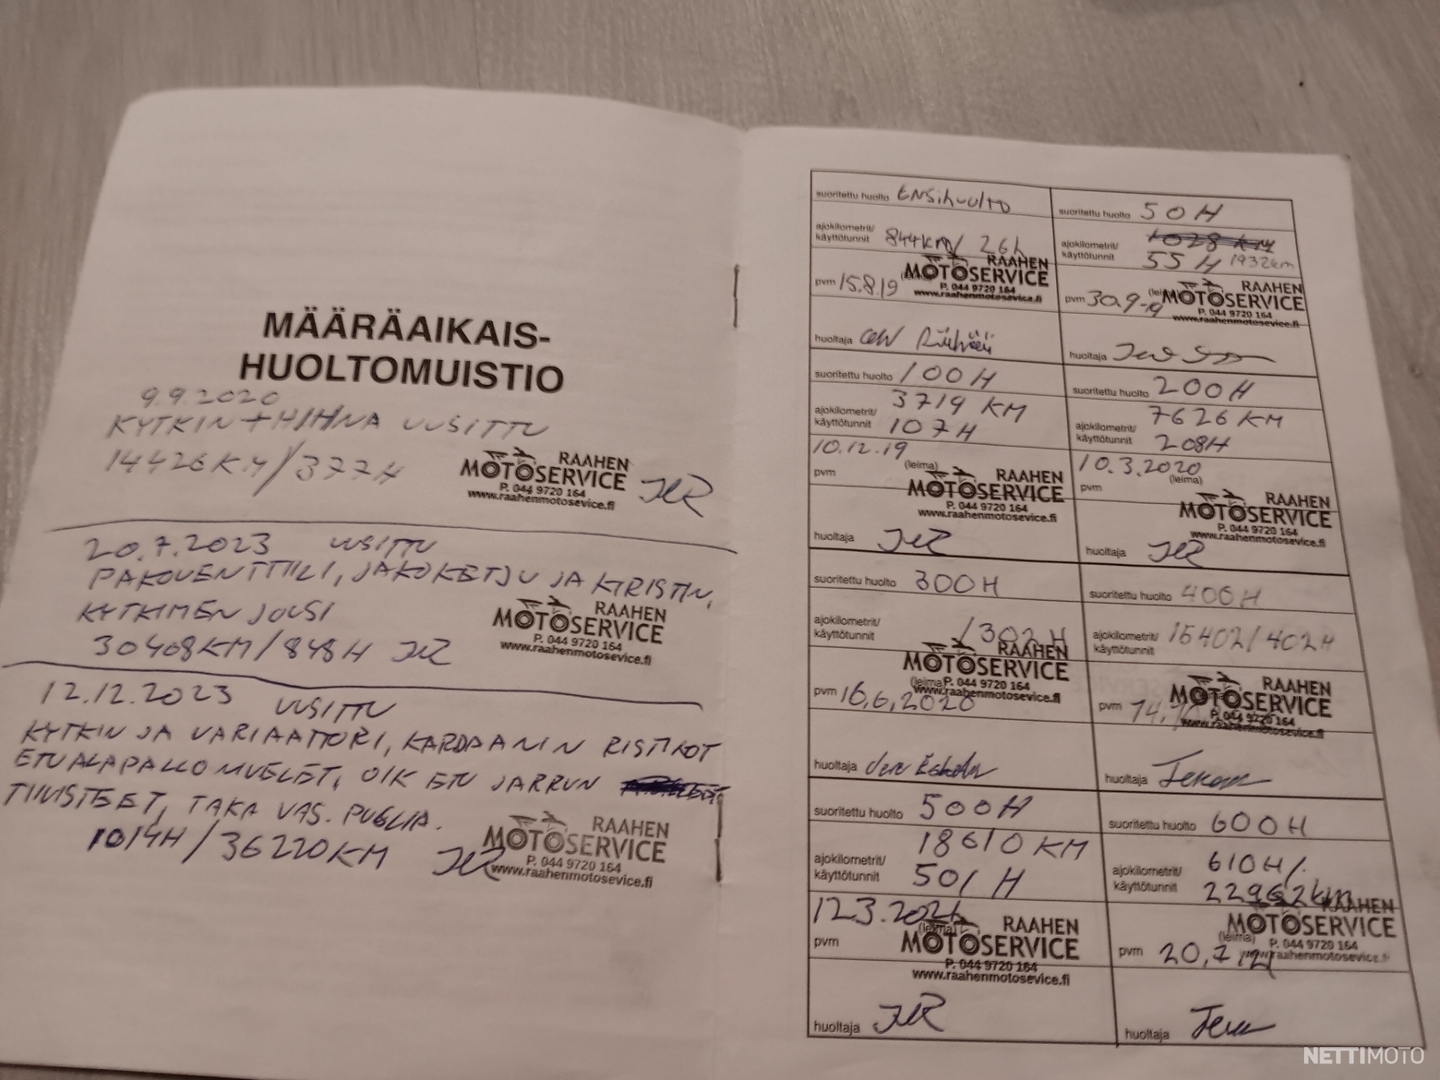 MÄÄRÄAIKAIS-
HUOLTOMUISTIO
9.9.2020
KYTKIN + HIHNA UUSITTU
14426 KM / 377H
RAAHEN
MOTOSERVICE
P. 044 9720 164
www.raahenmotosevice.fi
20.7.2023 UUSITTU
PAKOVENTTIILI, JAKOKETJU JA KIRISTIN,
KYTKIMEN JOUSI
30408KM/848H
RAAHEN
MOTOSERVICE
P. 044 9720 164
www.raahenmotosevice.fi
12.12.2023 UUSITTU
KYTKIN JA VARIAATTORI, KARDAANIN RISTIKOT
ETUALAPALLONIVELET, OIK ETU JARRUN
TIIVISTEET, TAKA VAS. PUSLIA.
1014H / 36220KM
RAAHEN
MOTOSERVICE
P. 044 9720 164
www.raahenmotosevice.fi
suoritettu huolto Ensihuolto
ajokilometrit/
käyttötunnit 844km/ 26h
RAAHEN
MOTOSERVICE
P. 044 9720 164
www.raahenmotosevice.fi
pvm 15.8.19
huoltaja
suoritettu huolto 50H
ajokilometrit/ 1028 km
käyttötunnit 55H 1932km
RAAHEN
MOTOSERVICE
P. 044 9720 164
www.raahenmotosevice.fi
pvm 30.9-19
huoltaja
suoritettu huolto 100H
ajokilometrit/ 3719 KM
käyttötunnit 107H
10.12.19
pvm (leima)
RAAHEN
MOTOSERVICE
P. 044 9720 164
www.raahenmotosevice.fi
huoltaja
suoritettu huolto 200H
ajokilometrit/ 7626 KM
käyttötunnit 208H
10.3.2020
pvm (leima)
RAAHEN
MOTOSERVICE
P. 044 9720 164
www.raahenmotosevice.fi
huoltaja
suoritettu huolto 300H
ajokilometrit/
käyttötunnit /302H
RAAHEN
MOTOSERVICE
(leima) P. 044 9720 164
www.raahenmotosevice.fi
pvm 16.6.2020
huoltaja
suoritettu huolto 400H
ajokilometrit/ 15402/402H
käyttötunnit
RAAHEN
MOTOSERVICE
P. 044 9720 164
www.raahenmotosevice.fi
pvm 14.
huoltaja
suoritettu huolto 500H
18610 KM
ajokilometrit/
käyttötunnit 501 H
12.3.2021
pvm (leima)
RAAHEN
MOTOSERVICE
P. 044 9720 164
www.raahenmotosevice.fi
huoltaja
suoritettu huolto 600H
ajokilometrit/ 610H/.
käyttötunnit 22962km
RAAHEN
MOTOSERVICE
(leima) P. 044 9720 164
www.raahenmotosevice.fi
pvm 20.7.21
huoltaja
NETTIMOTO